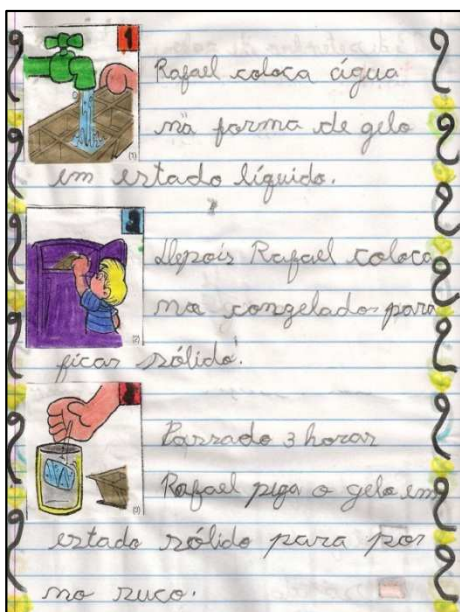 1
Rafael coloca água
na forma de gelo
(1)
em estado líquido.
2
Depois Rafael coloca
no congelador para
(2)
ficar sólido.
Passado 3 horas
Rafael pega o gelo em
(3)
estado sólido para por
no suco.